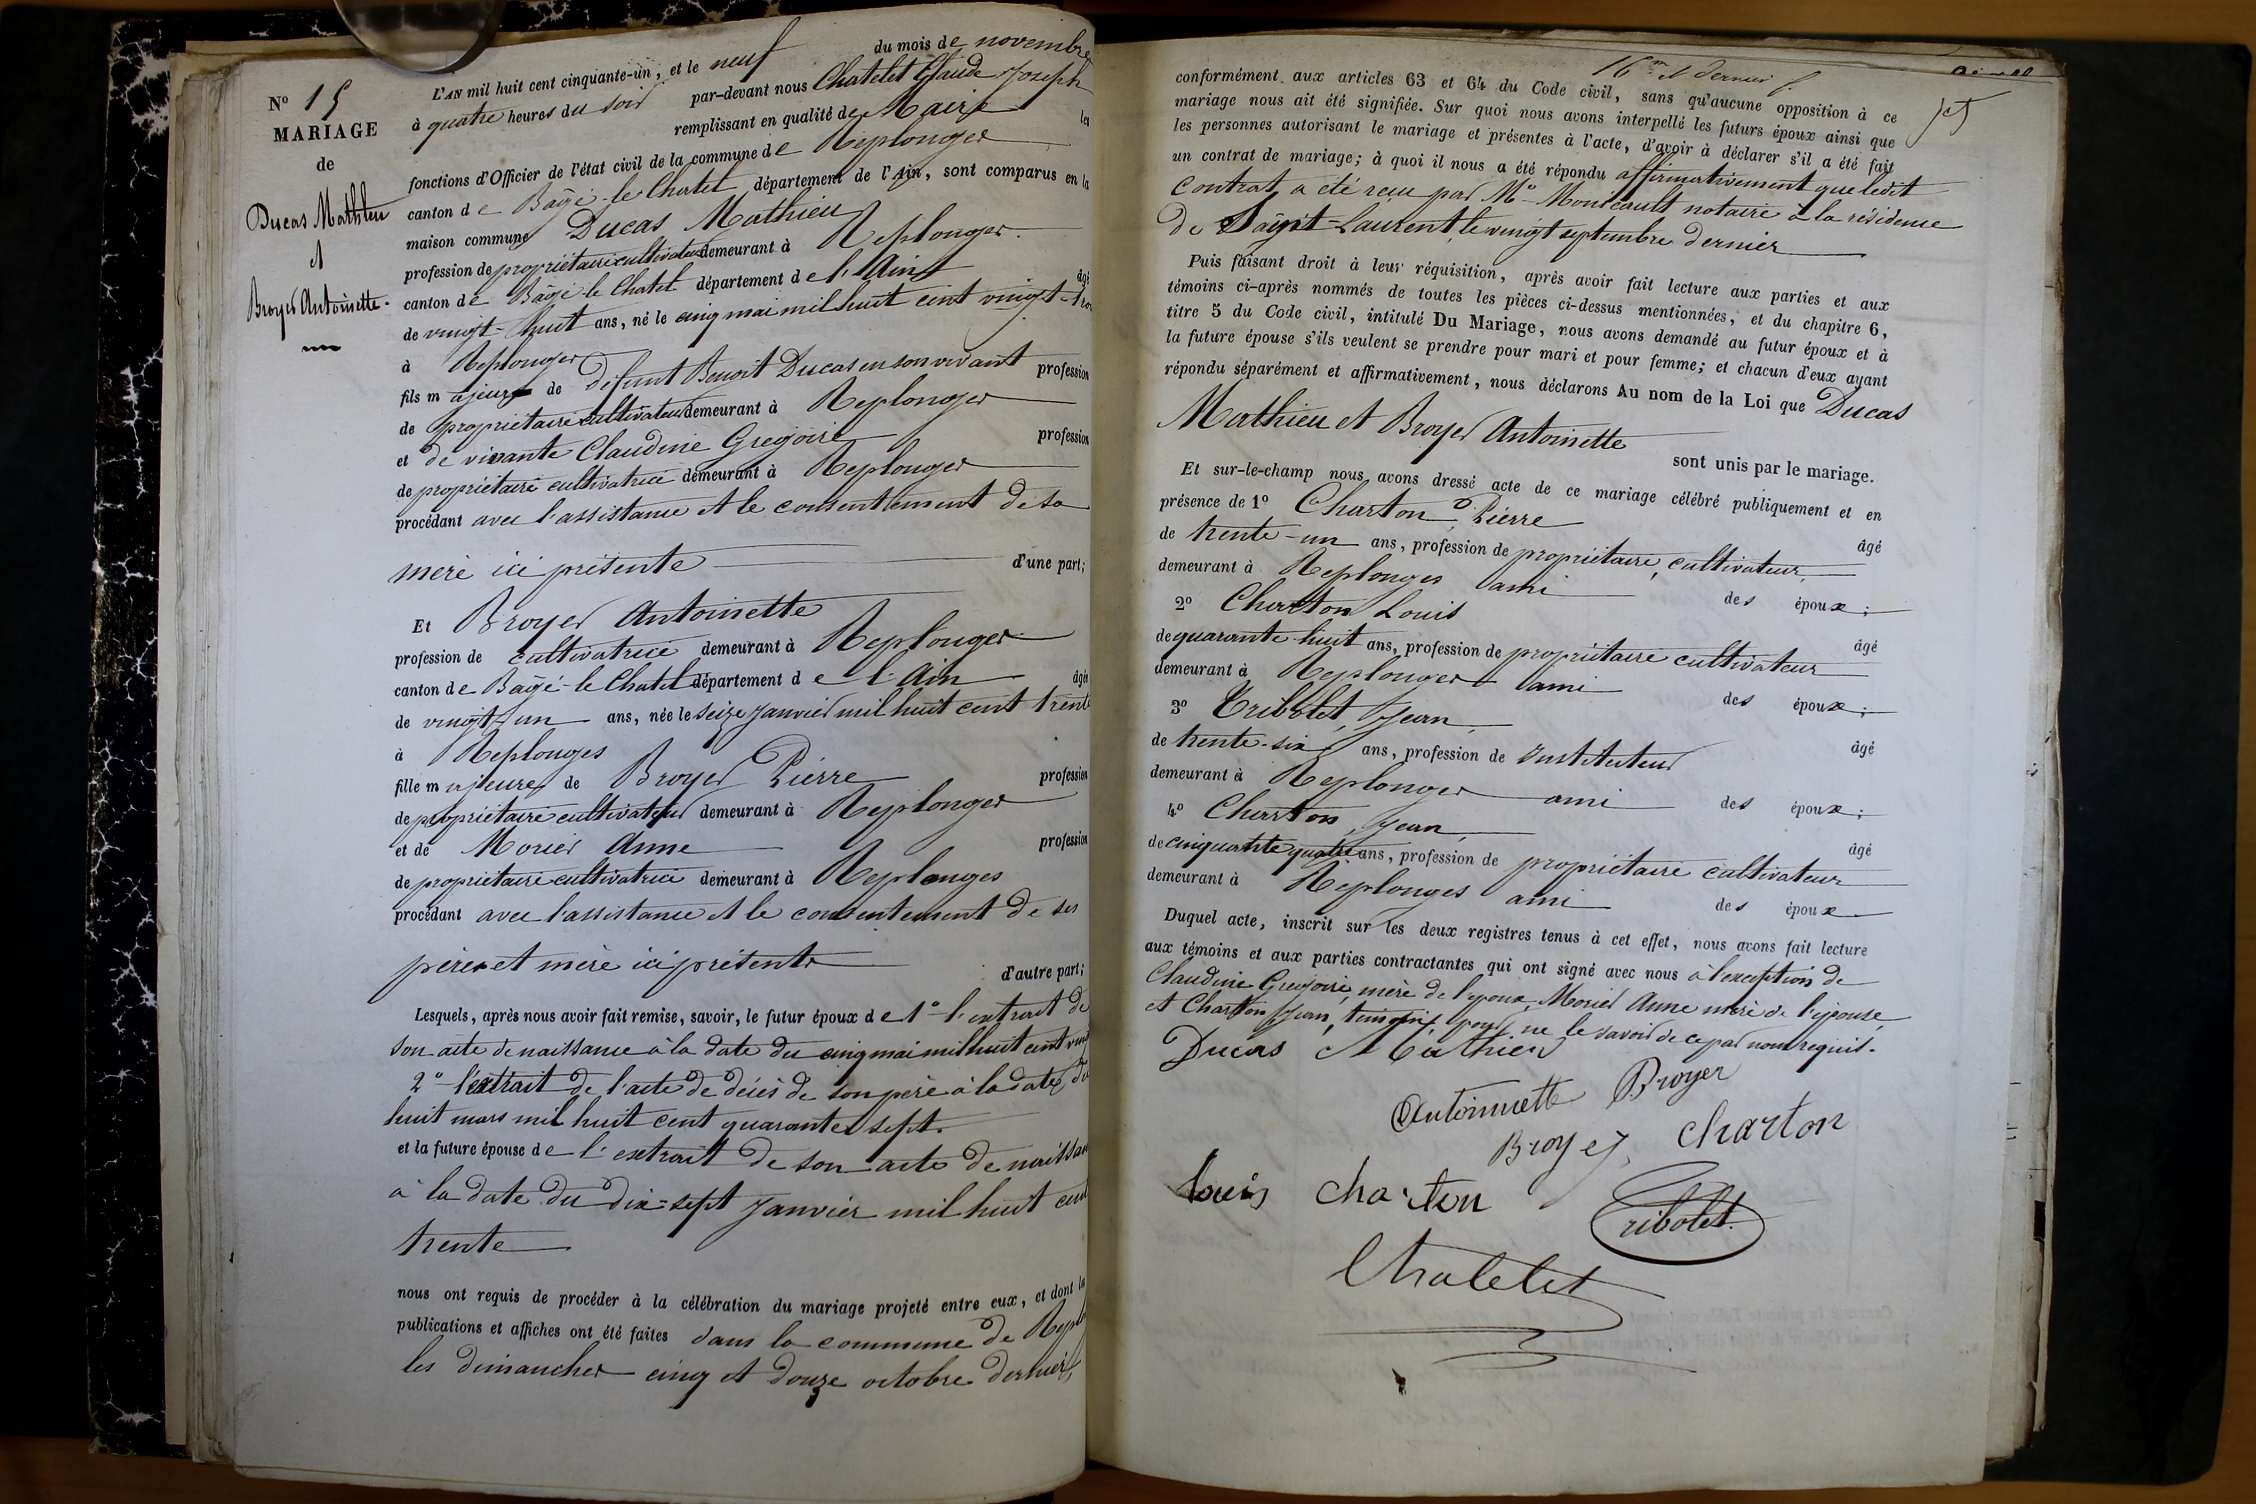 N° 15
MARIAGE
de
Ducas Mathieu
et
Broyer Antoinette.
L'AN mil huit cent cinquante-un, et le neuf du mois de novembre
à quatre heures du soir par-devant nous Chatelet Claude Joseph
remplissant en qualité de Maire les
fonctions d'Officier de l'état civil de la commune de Replonges
canton de Bâgé-le-Chatel, département de l'Ain, sont comparus en la
maison commune Ducas Mathieu
profession de propriétaire cultivateur demeurant à Replonges.
canton de Bâgé le Chatel département de l'Ain âgé
de vingt-huit ans, né le cinq mai mil huit cent vingt-trois
à Replonges
fils majeur de défunt Benoit Ducas en son vivant profession
de propriétaire cultivateur demeurant à Replonges
et de vivante Claudine Gregoire profession
de propriétaire cultivatrice demeurant à Replonges
procédant avec l'assistance et le consentement de sa
mère ici présente d'une part;
Et Broyer Antoinette
profession de cultivatrice demeurant à Replonges
canton de Bâgé-le Chatel département de l'Ain âgée
de vingt-un ans, née le seize Janvier mil huit cent trente
à Replonges
fille majeure de Broyer Pierre profession
de propriétaire cultivateur demeurant à Replonges
et de Morier Anne profession
de propriétaire cultivatrice demeurant à Replonges
procédant avec l'assistance et le consentement de ses
père et mère ici présents d'autre part;
Lesquels, après nous avoir fait remise, savoir, le futur époux de 1° l'extrait de
son acte de naissance à la date du cinq mai mil huit cent vingt
2° l'extrait de l'acte de décès de son père à la date du
huit mars mil huit cent quarante sept.
et la future épouse de l'extrait de son acte de naissan
à la date du dix-sept Janvier mil huit cent
trente
nous ont requis de procéder à la célébration du mariage projeté entre eux, et dont la
publications et affiches ont été faites dans la commune de Repl
les dimanches cinq et douze octobre dernier,
16me et dernier f.
conformément aux articles 63 et 64 du Code civil, sans qu'aucune opposition à ce
mariage nous ait été signifiée. Sur quoi nous avons interpellé les futurs époux ainsi que
les personnes autorisant le mariage et présentes à l'acte, d'avoir à déclarer s'il a été fait
un contrat de mariage; à quoi il nous a été répondu affirmativement que ledit
contrat a été reçu par Me Montcault notaire à la résidence
de Saint-Laurent, le vingt septembre dernier
Puis faisant droit à leur réquisition, après avoir fait lecture aux parties et aux
témoins ci-après nommés de toutes les pièces ci-dessus mentionnées, et du chapitre 6,
titre 5 du Code civil, intitulé Du Mariage, nous avons demandé au futur époux et à
la future épouse s'ils veulent se prendre pour mari et pour femme; et chacun d'eux ayant
répondu séparément et affirmativement, nous déclarons Au nom de la Loi que Ducas
Mathieu et Broyer Antoinette
sont unis par le mariage.
Et sur-le-champ nous avons dressé acte de ce mariage célébré publiquement et en
présence de 1° Charton, Pierre âgé
de trente-un ans, profession de propriétaire, cultivateur,
demeurant à Replonges ami des époux;
2° Charton Louis âgé
de quarante-huit ans, profession de propriétaire cultivateur
demeurant à Replonges ami des époux;
3° Tribolet, Jean, âgé
de trente-six ans, profession de Instituteur
demeurant à Replonges ami des époux;
4° Charton, Jean, âgé
de cinquante quatre ans, profession de propriétaire cultivateur
demeurant à Replonges ami des époux
Duquel acte, inscrit sur les deux registres tenus à cet effet, nous avons fait lecture
aux témoins et aux parties contractantes qui ont signé avec nous à l'exception de
Claudine Gregoire, mère de l'époux, Morier Anne mère de l'épouse,
et Charton Jean, témoin, pour ne le savoir de ce par nous requis.
Ducas Mathieu
Antoinette Broyer
Broyer Charton
Louis Charton
Tribolet.
Chatelet